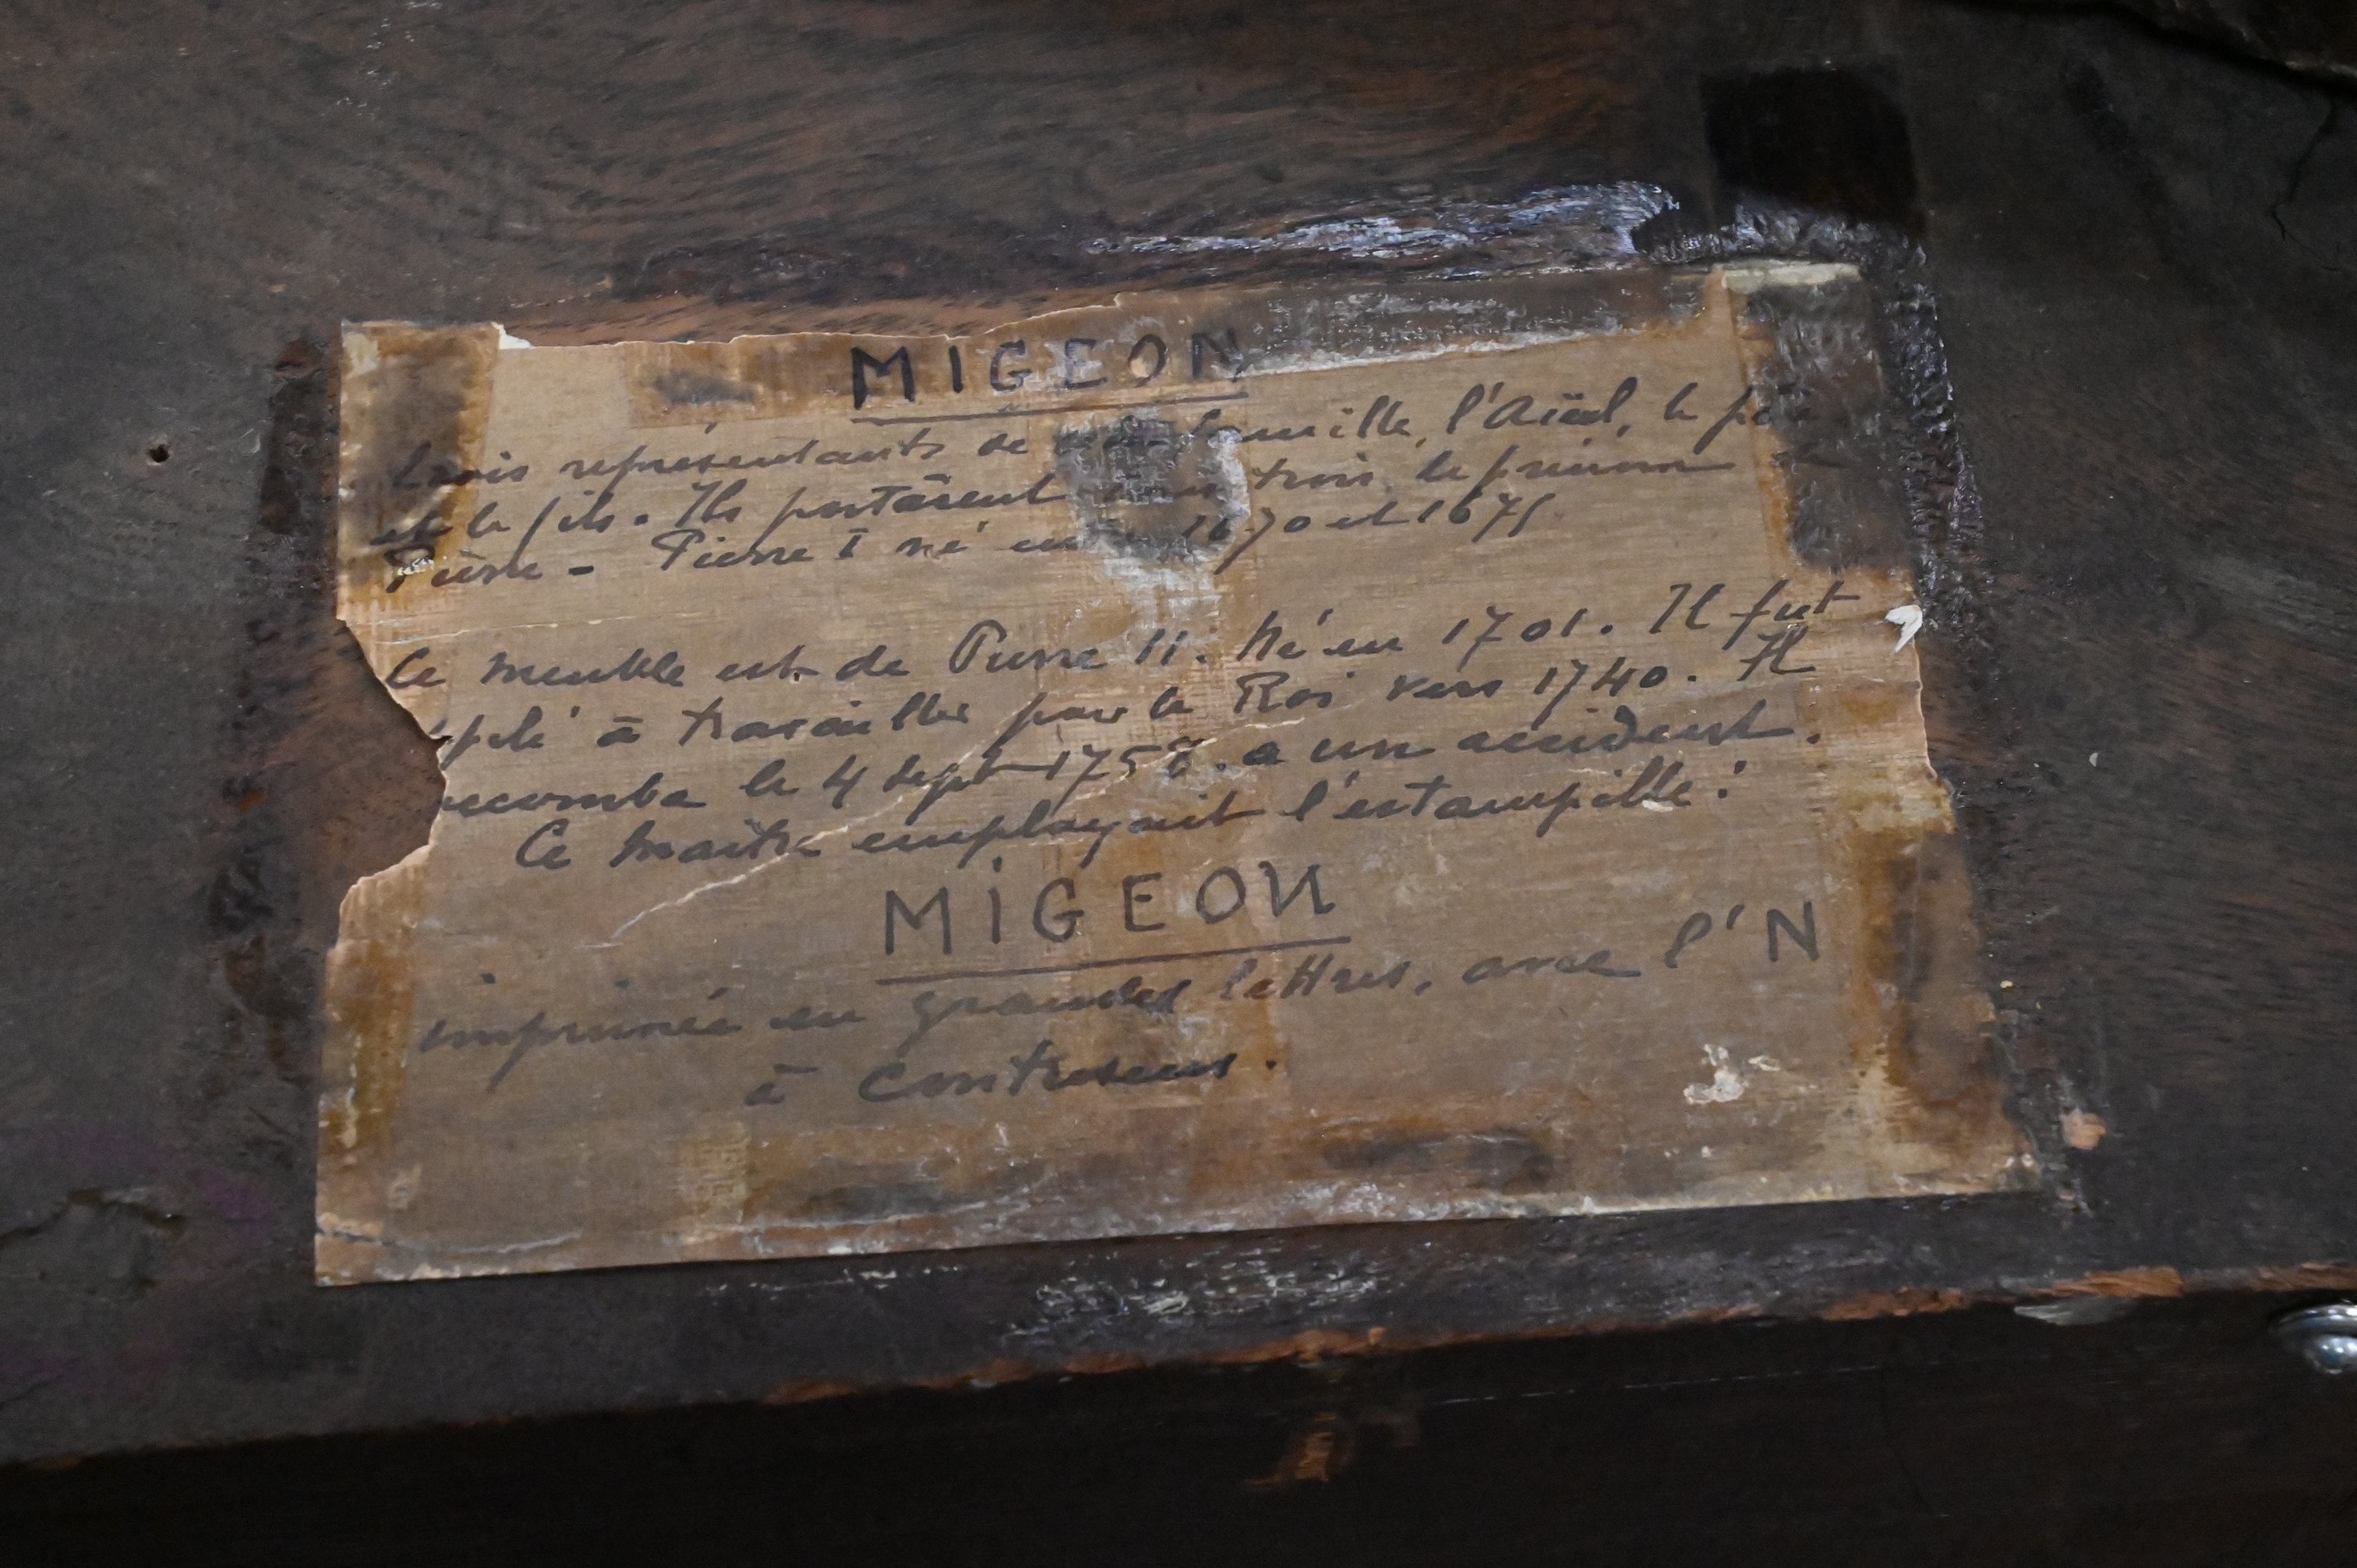 MIGEON
trois représentants de cette famille, l'Aïeul, le père
et le fils. Ils portèrent tous trois le prénom de
Pierre - Pierre I né entre 1670 et 1675
Ce meuble est de Pierre II. Né en 1701. Il fut
pelé à travailler pour le Roi vers 1740. Il
uccomba le 4 sept 1758. a un accident.
Ce maître employait l'estampille :
MIGEOИ
imprimée en grandes lettres, avec l'N
à contresens.